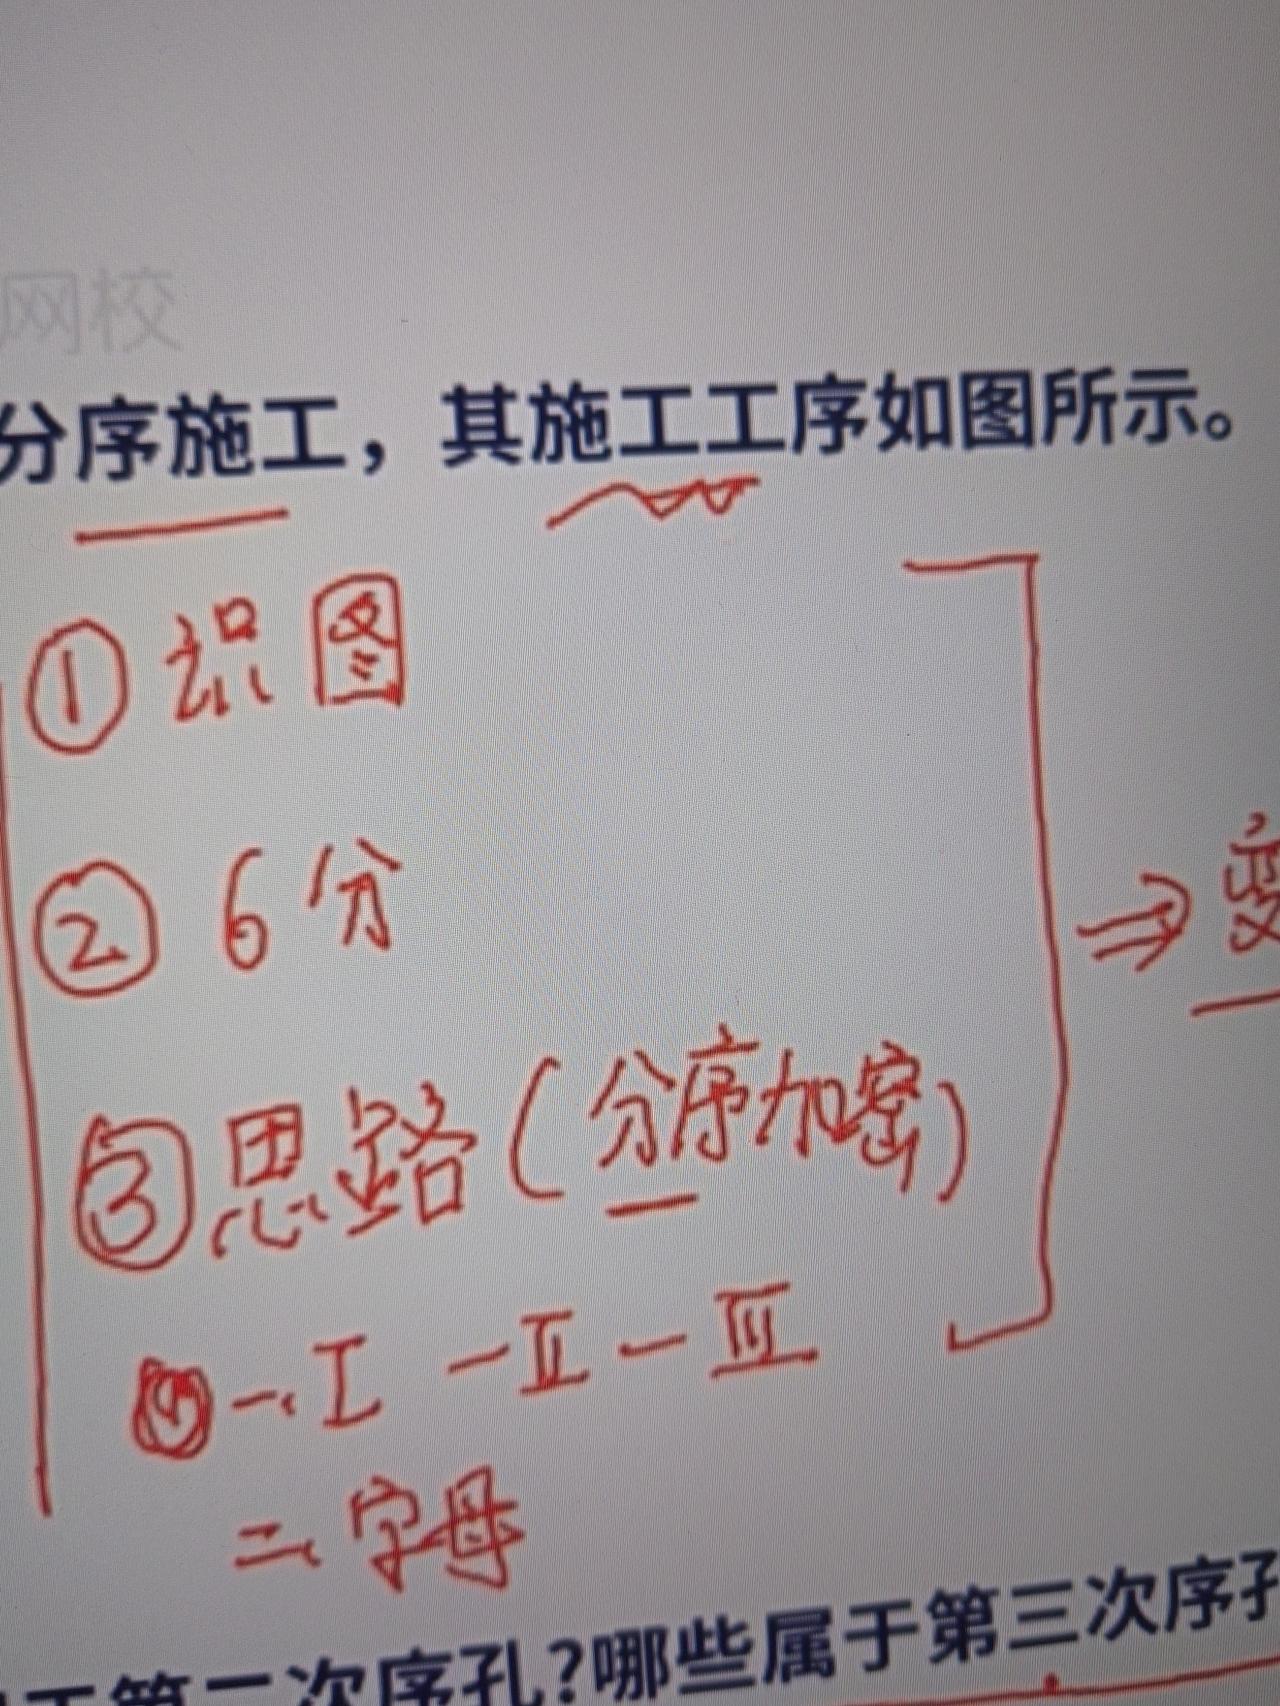 网校
分序施工，其施工工序如图所示。
① 识图
② 6分
⇒ 变
③ 思路(分序加密)
一、I — II — III
二、字母
第二次序孔?哪些属于第三次序孔